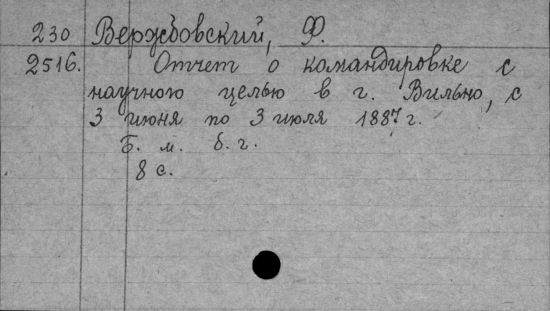 230 Вержбовский, Ф.
2516. Отчет о командировке с
научною целью в г. Вильно, с
3 июня по 3 июля 1887 г.
Б. м. б. г.
8 с.